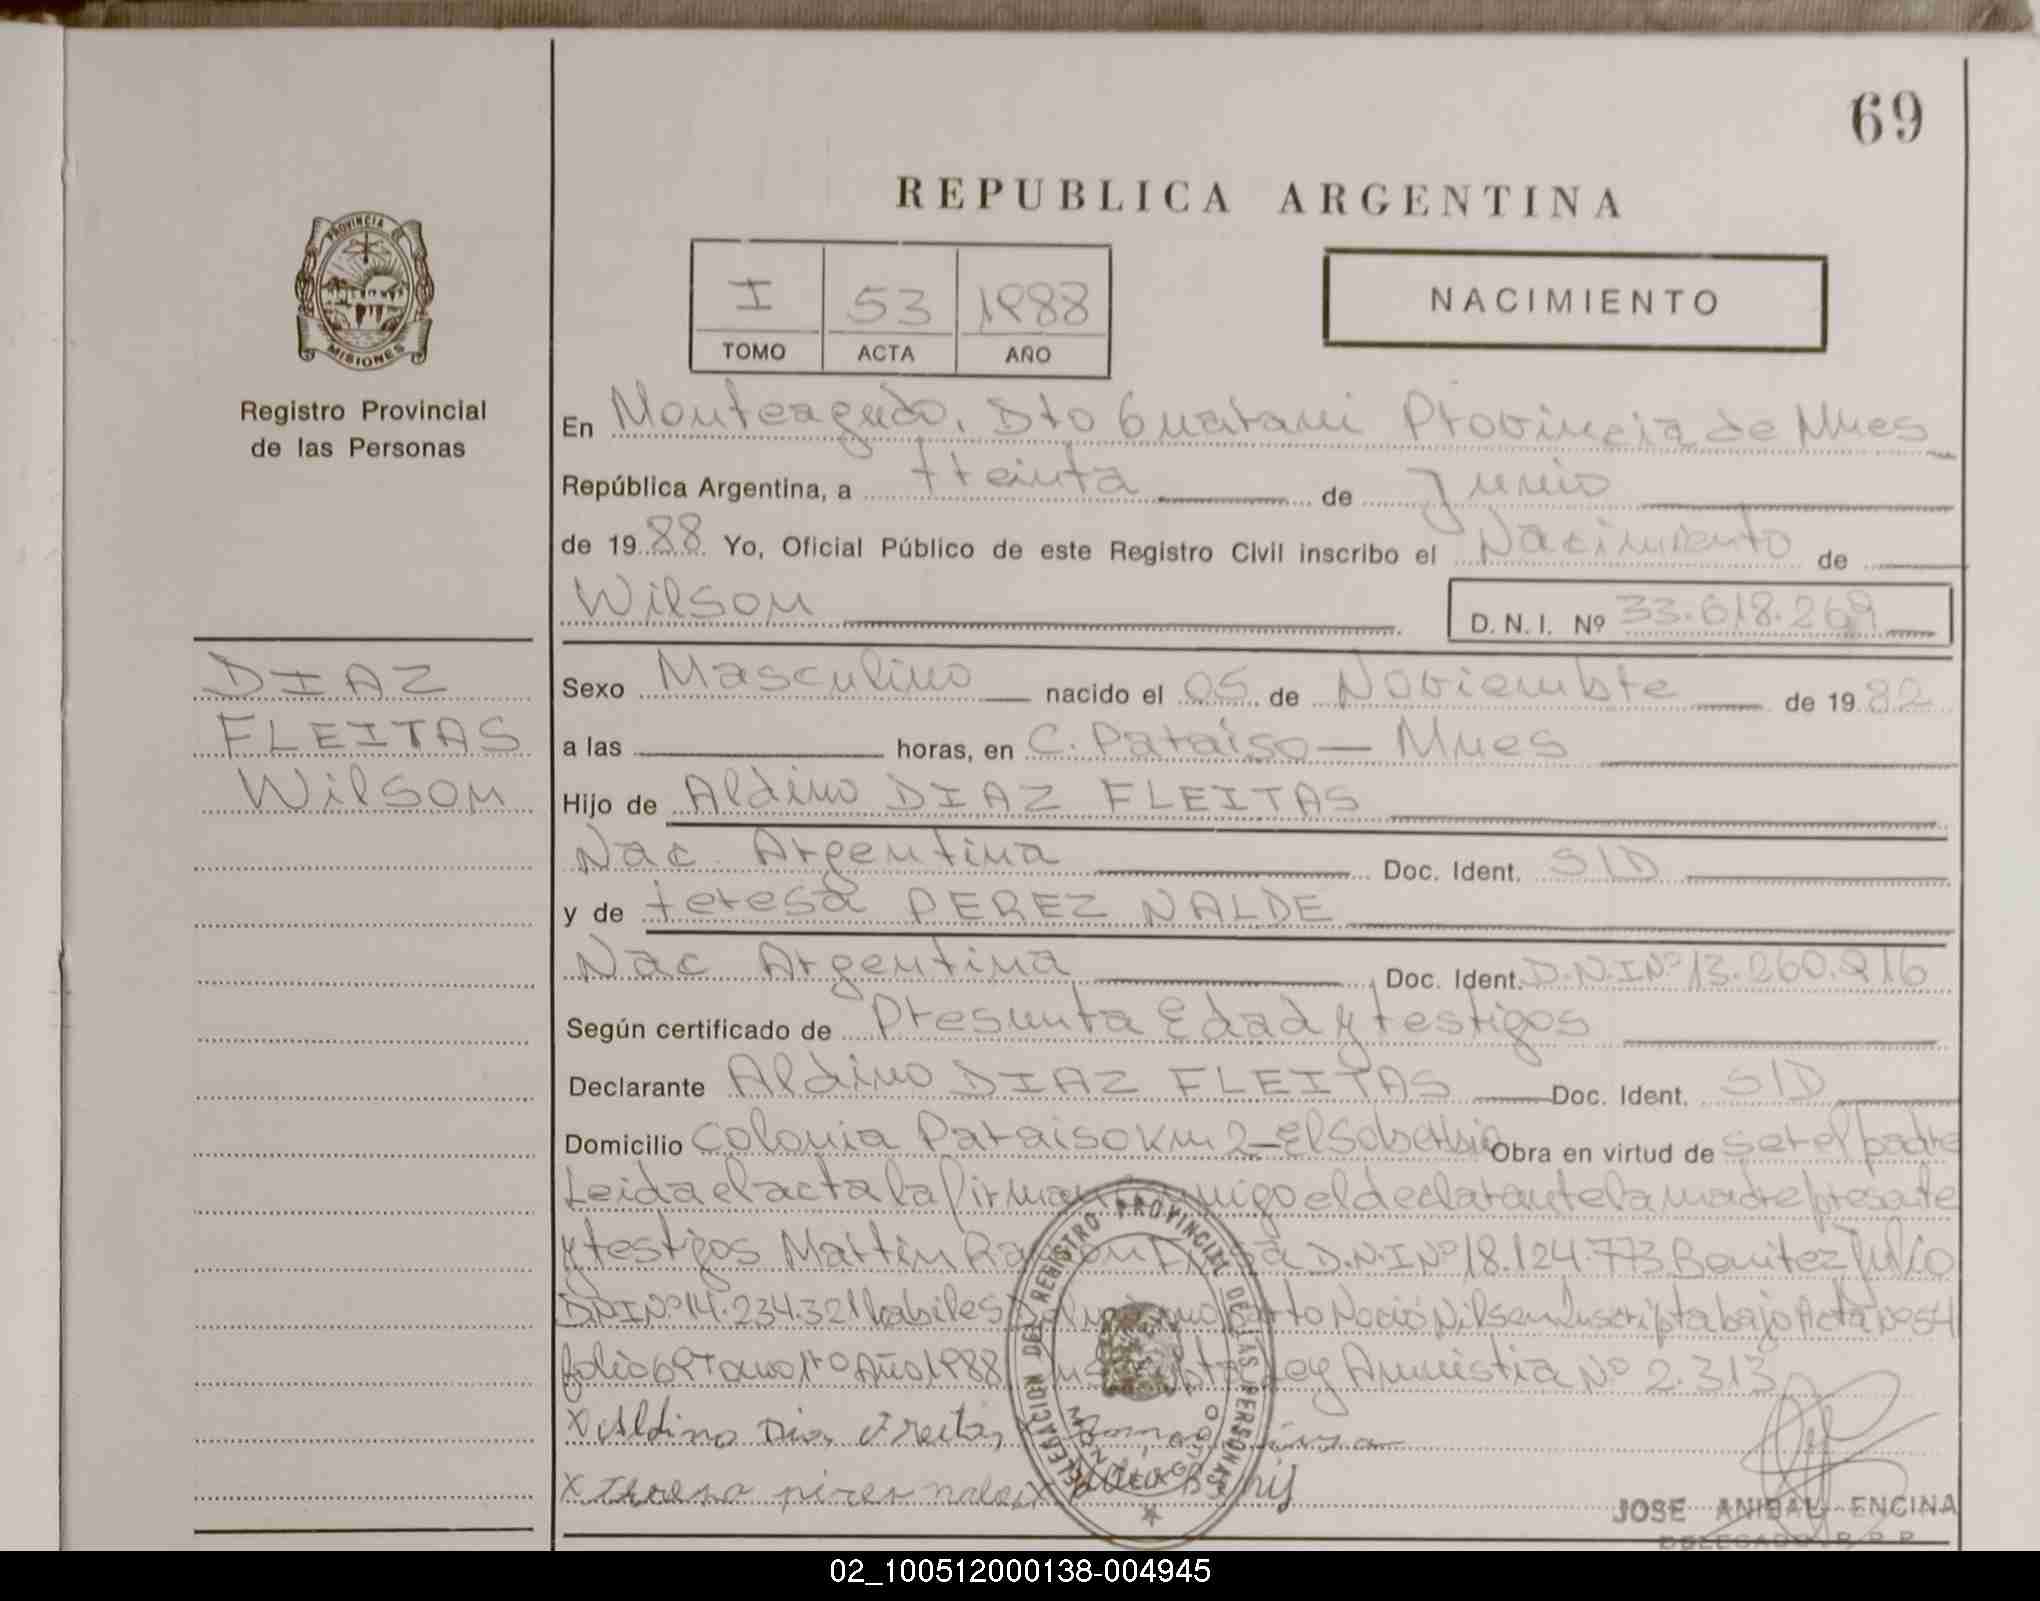 69
REPUBLICA ARGENTINA
PROVINCIA DE
MISIONES
Registro Provincial
de las Personas
I 53 1988
TOMO ACTA AÑO
NACIMIENTO
En Monteagudo. Dto Guarani Provincia de Mnes
República Argentina, a treinta de Junio
de 1988 Yo, Oficial Público de este Registro Civil inscribo el Nacimiento de
Wilson D. N. I. Nº 33.618.269
DIAZ
FLEITAS
Wilson
Sexo Masculino nacido el 05 de Noviembre de 1982
a las horas, en C. Paraiso — Mnes
Hijo de Aldino DIAZ FLEITAS
Nac. Argentina Doc. Ident. S/D
y de teresa PEREZ NALDE
Nac Argentina Doc. Ident. D.N.I Nº 13.260.916
Según certificado de Presunta Edad y testigos
Declarante Aldino DIAZ FLEITAS Doc. Ident. S/D
Domicilio Colonia Paraiso Km 2 - El Soberbio Obra en virtud de ser el padre
Leida el acta la firman conmigo el declarante la madre presente
y testigos Martin Ramon D.N.I Nº 18.124.773 Benitez Julio
DNI Nº 14.234.321 habiles Nació Nilsen Inscripta bajo Acta Nº 54
folio 69 tomo 1º Año 1988 Ley Amnistia Nº 2.313
x Aldino Dias Freitas
x teresa pires naldes x
DELEGACION DEL REGISTRO PROVINCIAL DE LAS PERSONAS
MONTEAGUDO
JOSE ANIBAL ENCINA
DELEGADO R. P. P.
02_100512000138-004945